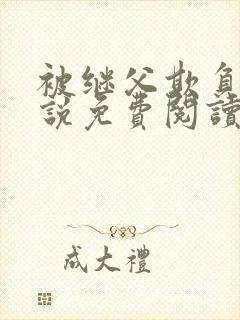 被继父欺负
說免費閱讀
成大禮